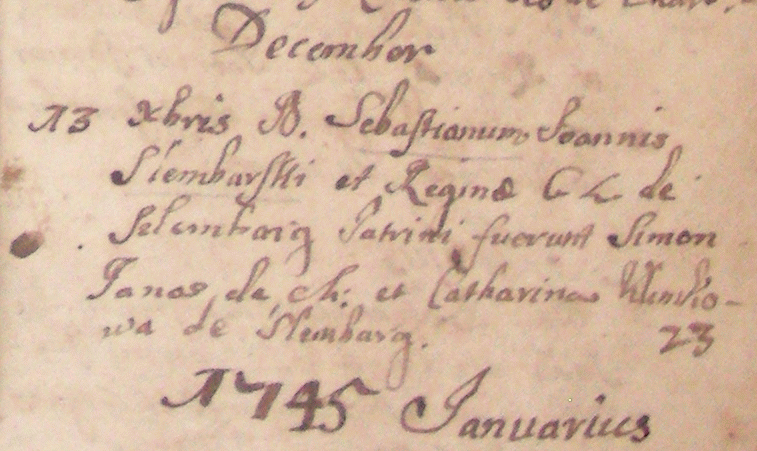 December
13 Xbris B. Sebastianum Joannis
Slembarskki et Reginæ C L de
Selembarg Patrini fuerunt Simon
Janos de ch: et Catharina
wa de Slembarg. 23
1745 Januarius